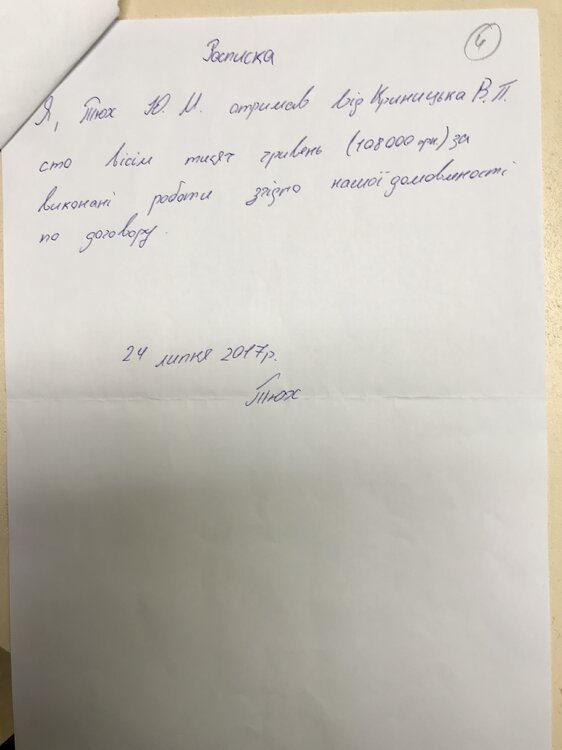 4
Расписка
Я, Тюх Ю. М. отримав від Криницька В. П.
сто вісім тисяч гривень (108 000 грн.) за
виконані роботи згідно нашої домовленості
по договору.
24 липня 2017 р.
Тюх